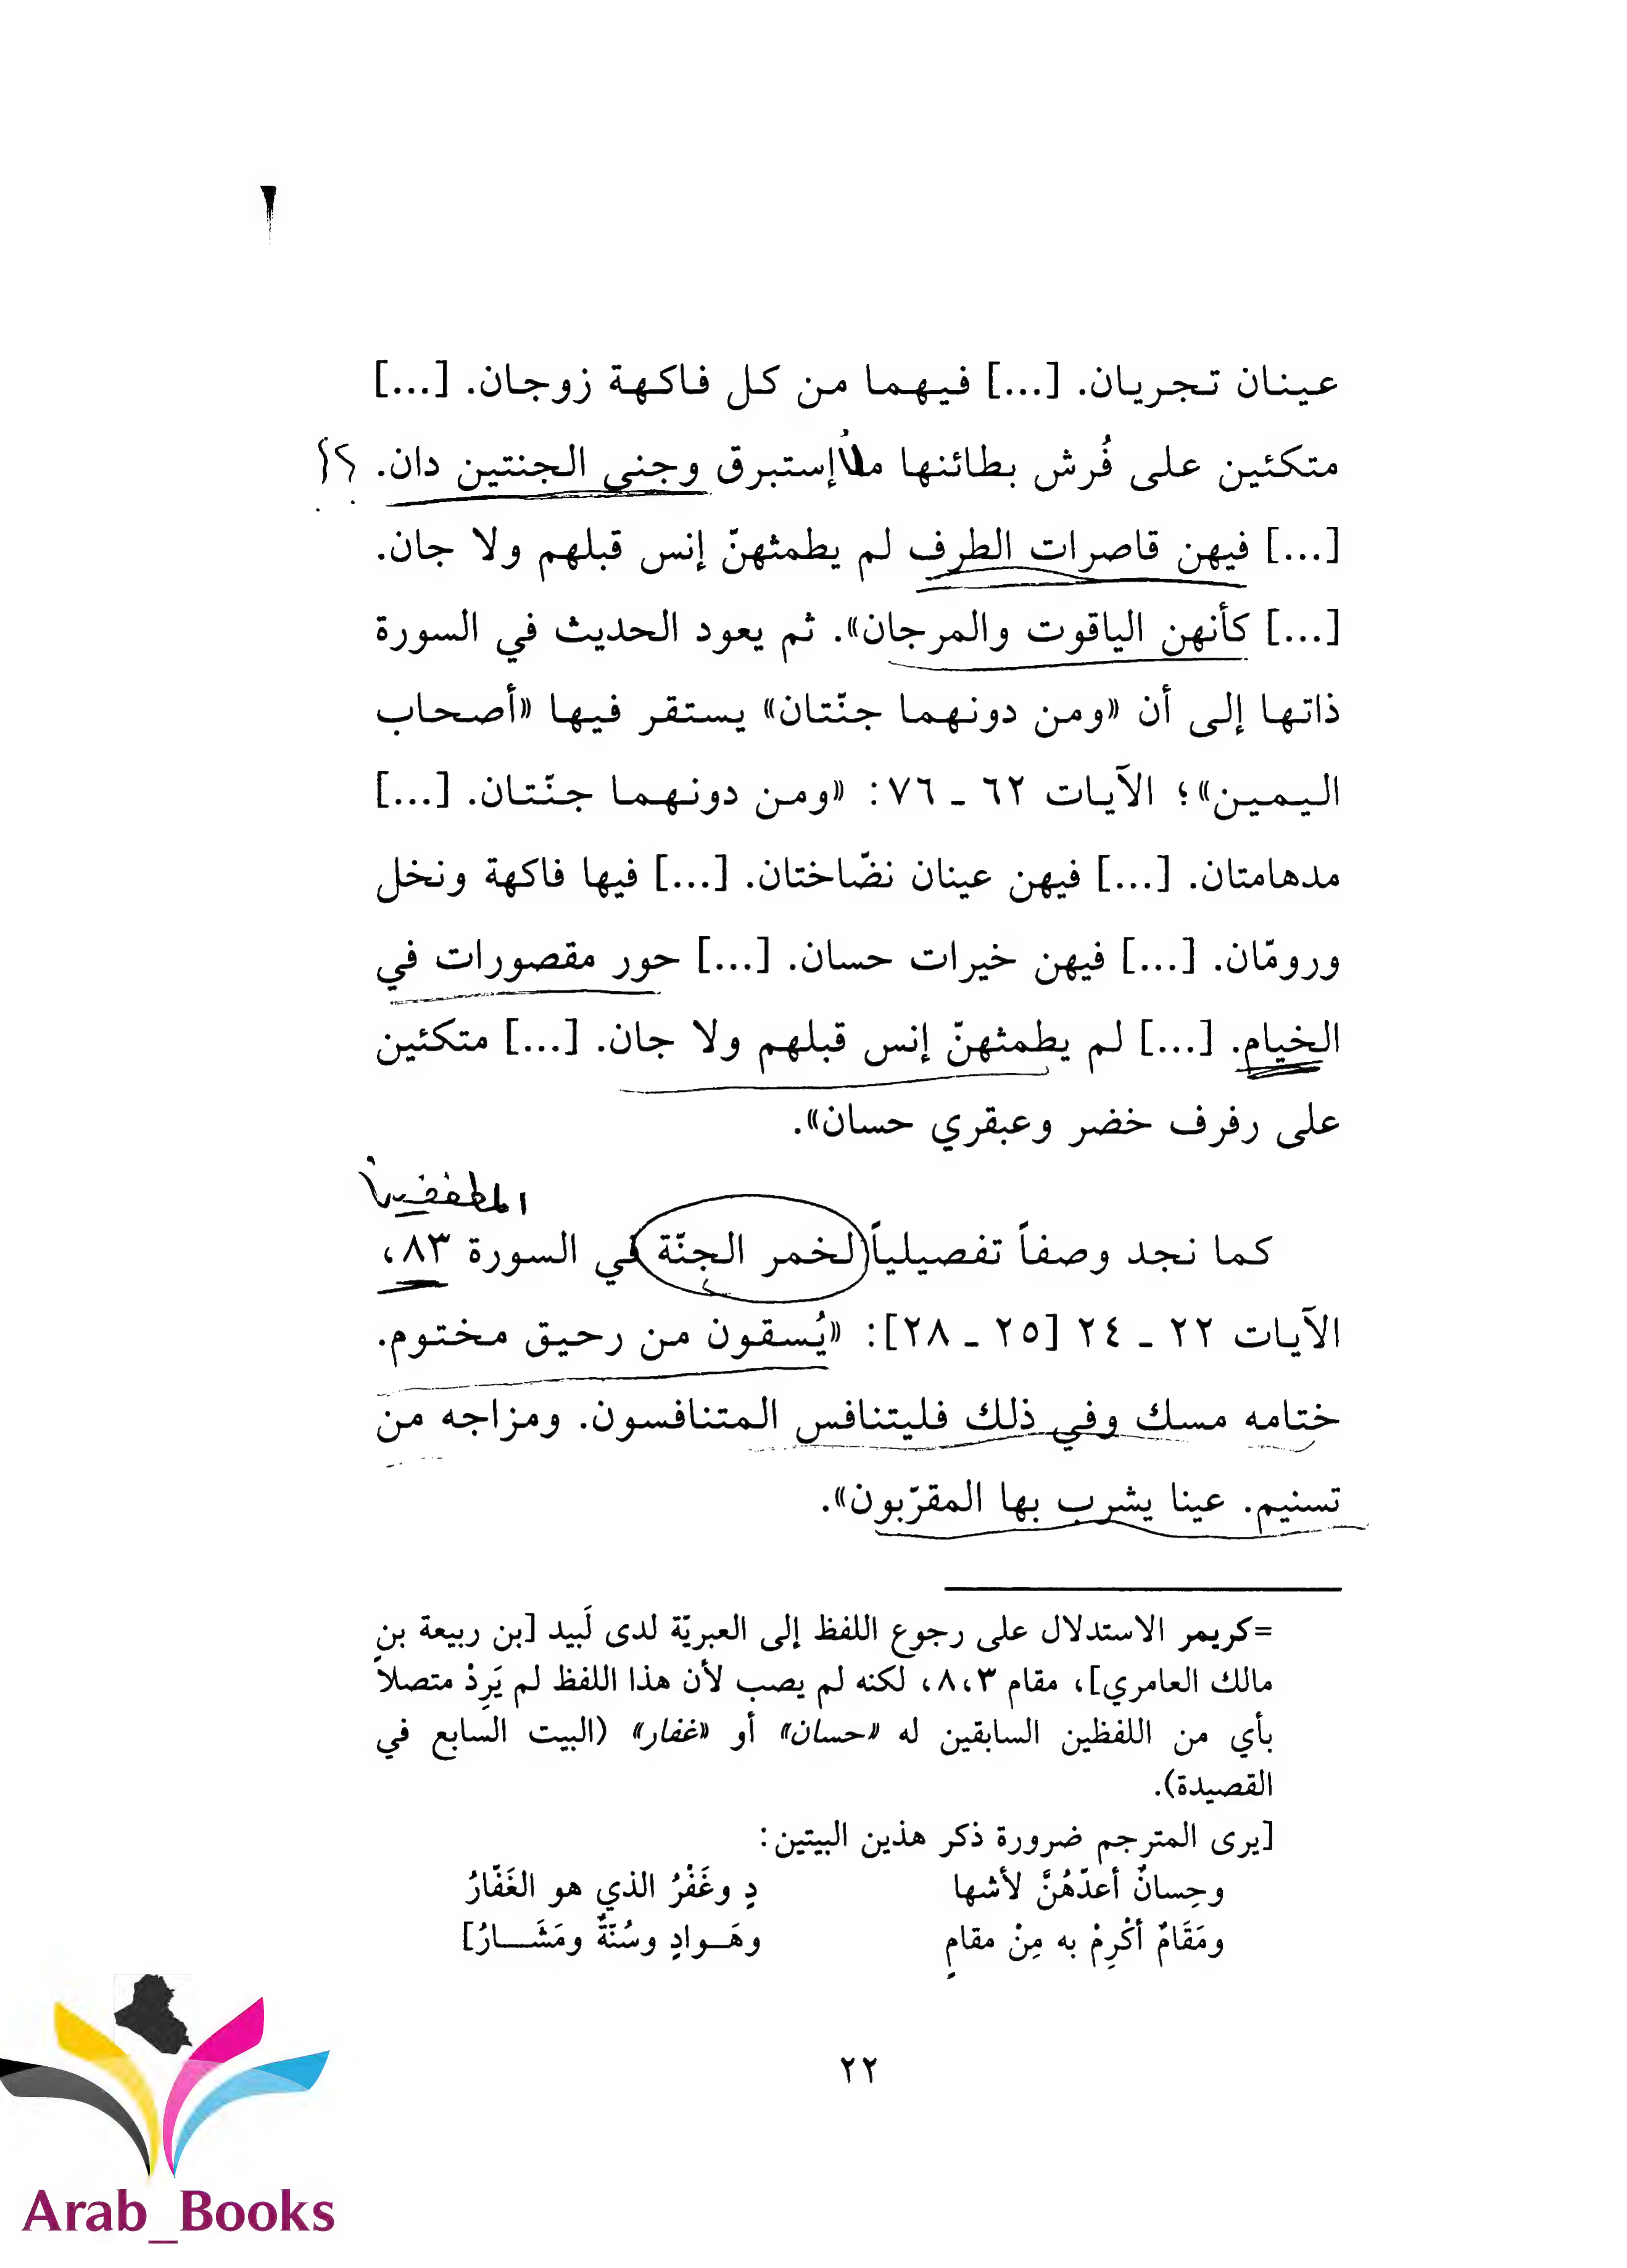 عينان تجريان. [...] فيهما من كل فاكهة زوجان. [...]
متكئين على فُرش بطائنها من إستبرق وجنى الجنتين دان. ؟!
[...] فيهن قاصرات الطرف لم يطمثهنّ إنس قبلهم ولا جان.
[...] كأنهن الياقوت والمرجان». ثم يعود الحديث في السورة
ذاتها إلى أن «ومن دونهما جنّتان» يستقر فيها «أصحاب
اليمين»؛ الآيات ٦٢ ـ ٧٦: «ومن دونهما جنّتان. [...]
مدهامتان. [...] فيهن عينان نضّاختان. [...] فيها فاكهة ونخل
ورومّان. [...] فيهن خيرات حسان. [...] حور مقصورات في
الخيام. [...] لم يطمثهنّ إنس قبلهم ولا جان. [...] متكئين
على رفرف خضر وعبقري حسان».
المطففين
كما نجد وصفاً تفصيلياً لخمر الجنّة في السورة ٨٣،
الآيات ٢٢ ـ ٢٤ [٢٥ ـ ٢٨]: «يُسقون من رحيق مختوم.
ختامه مسك وفي ذلك فليتنافس المتنافسون. ومزاجه من
تسنيم. عينا يشرب بها المقرّبون».
=كريمر الاستدلال على رجوع اللفظ إلى العبريّة لدى لَبيد [بن ربيعة بن
مالك العامري]، مقام ٨،٣، لكنه لم يصب لأن هذا اللفظ لم يَرِدْ متصلاً
بأي من اللفظين السابقين له «حسان» أو «غفار» (البيت السابع في
القصيدة).
[يرى المترجم ضرورة ذكر هذين البيتين:
وحِسانٌ أعدّهُنَّ لأشها دٍ وغَفْرُ الذي هو الغَفّارُ
ومَقَامٌ أكْرِمْ به مِنْ مقامٍ وهَـوادٍ وسُنّةٌ ومَشَـارُ]
٢٢
Arab_Books